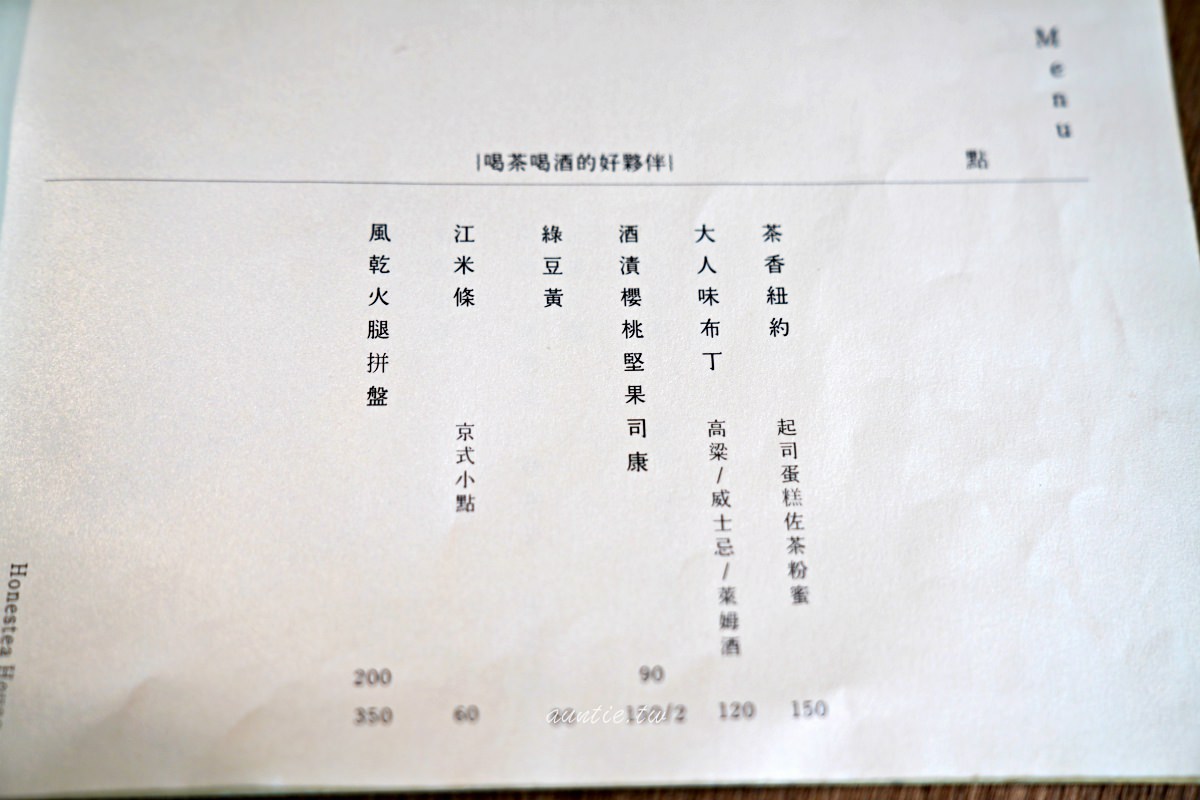 Menu
點
|喝茶喝酒的好夥伴|
茶香紐約
起司蛋糕佐茶粉蜜
150
大人味布丁
高粱/威士忌/萊姆酒
120
酒漬櫻桃堅果司康
90
綠豆黃
江米條
京式小點
60
風乾火腿拼盤
200
350
auntie.tw
Honestea